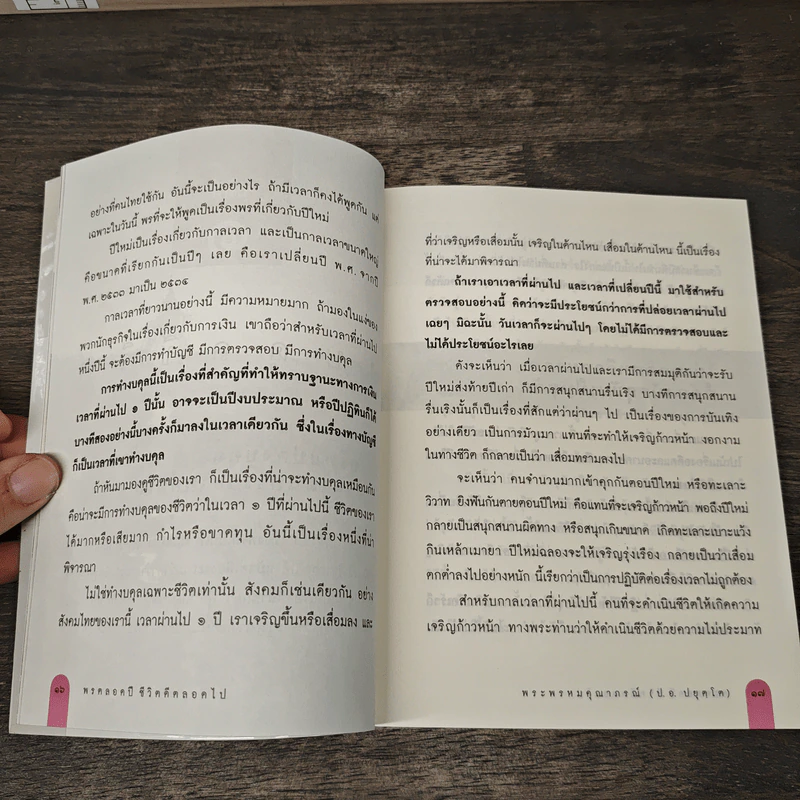 อย่างที่คนไทยใช้กัน อันนี้จะเป็นอย่างไร ถ้ามีเวลาก็คงได้พูดกัน แต่
เฉพาะในวันนี้ พรที่จะให้พูดเป็นเรื่องพรที่เกี่ยวกับปีใหม่
ปีใหม่เป็นเรื่องเกี่ยวกับกาลเวลา และเป็นกาลเวลาขนาดใหญ่
คือขนาดที่เรียกกันเป็นปีๆ เลย คือเราเปลี่ยนปี พ.ศ. จากปี
พ.ศ. ๒๕๓๓ มาเป็น ๒๕๓๔
กาลเวลาที่ยาวนานอย่างนี้ มีความหมายมาก ถ้ามองในแง่ของ
พวกนักธุรกิจในเรื่องเกี่ยวกับการเงิน เขาถือว่าสำหรับเวลาที่ผ่านไป
หนึ่งปีนี้ จะต้องมีการทำบัญชี มีการตรวจสอบ มีการทำงบดุล
การทำงบดุลนี้เป็นเรื่องที่สำคัญที่ทำให้ทราบฐานะทางการเงิน
เวลาที่ผ่านไป ๑ ปีนั้น อาจจะเป็นปีงบประมาณ หรือปีปฏิทินก็ได้
บางทีสองอย่างนี้บางครั้งก็มาลงในเวลาเดียวกัน ซึ่งในเรื่องทางบัญชี
ก็เป็นเวลาที่เขาทำงบดุล
ถ้าหันมามองดูชีวิตของเรา ก็เป็นเรื่องที่น่าจะทำงบดุลเหมือนกัน
คือน่าจะมีการทำงบดุลของชีวิตว่าในเวลา ๑ ปีที่ผ่านไปนี้ ชีวิตของเรา
ได้มากหรือเสียมาก กำไรหรือขาดทุน อันนี้เป็นเรื่องหนึ่งที่น่า
พิจารณา
ไม่ใช่ทำงบดุลเฉพาะชีวิตเท่านั้น สังคมก็เช่นเดียวกัน อย่าง
สังคมไทยของเรานี้ เวลาผ่านไป ๑ ปี เราเจริญขึ้นหรือเสื่อมลง และ
๑๖ พรตลอดปี ชีวิตดีตลอดไป
ที่ว่าเจริญหรือเสื่อมนั้น เจริญในด้านไหน เสื่อมในด้านไหน นี้เป็นเรื่อง
ที่น่าจะได้มาพิจารณา
ถ้าเราเอาเวลาที่ผ่านไป และเวลาที่เปลี่ยนปีนี้ มาใช้สำหรับ
ตรวจสอบอย่างนี้ คิดว่าจะมีประโยชน์กว่าการที่ปล่อยเวลาผ่านไป
เฉยๆ มิฉะนั้น วันเวลาก็จะผ่านไปๆ โดยไม่ได้มีการตรวจสอบและ
ไม่ได้ประโยชน์อะไรเลย
ดังจะเห็นว่า เมื่อเวลาผ่านไปและเรามีการสมมุติกันว่าจะรับ
ปีใหม่ส่งท้ายปีเก่า ก็มีการสนุกสนานรื่นเริง บางทีการสนุกสนาน
รื่นเริงนั้นก็เป็นเรื่องที่สักแต่ว่าผ่านๆ ไป เป็นเรื่องของการบันเทิง
อย่างเดียว เป็นการมัวเมา แทนที่จะทำให้เจริญก้าวหน้า งอกงาม
ในทางชีวิต ก็กลายเป็นว่า เสื่อมทรามลงไป
จะเห็นว่า คนจำนวนมากเข้าคุกกันตอนปีใหม่ หรือทะเลาะ
วิวาท ยิงฟันกันตายตอนปีใหม่ คือแทนที่จะเจริญก้าวหน้า พอถึงปีใหม่
กลายเป็นสนุกสนานผิดทาง หรือสนุกเกินขนาด เกิดทะเลาะเบาะแว้ง
กินเหล้าเมายา ปีใหม่ฉลองจะให้เจริญรุ่งเรือง กลายเป็นว่าเสื่อม
ตกต่ำลงไปอย่างหนัก นี้เรียกว่าเป็นการปฏิบัติต่อเรื่องเวลาไม่ถูกต้อง
สำหรับกาลเวลาที่ผ่านไปนี้ คนที่จะดำเนินชีวิตให้เกิดความ
เจริญก้าวหน้า ทางพระท่านว่าให้ดำเนินชีวิตด้วยความไม่ประมาท
พระพรหมคุณาภรณ์ (ป.อ. ปยุตฺโต) ๑๗